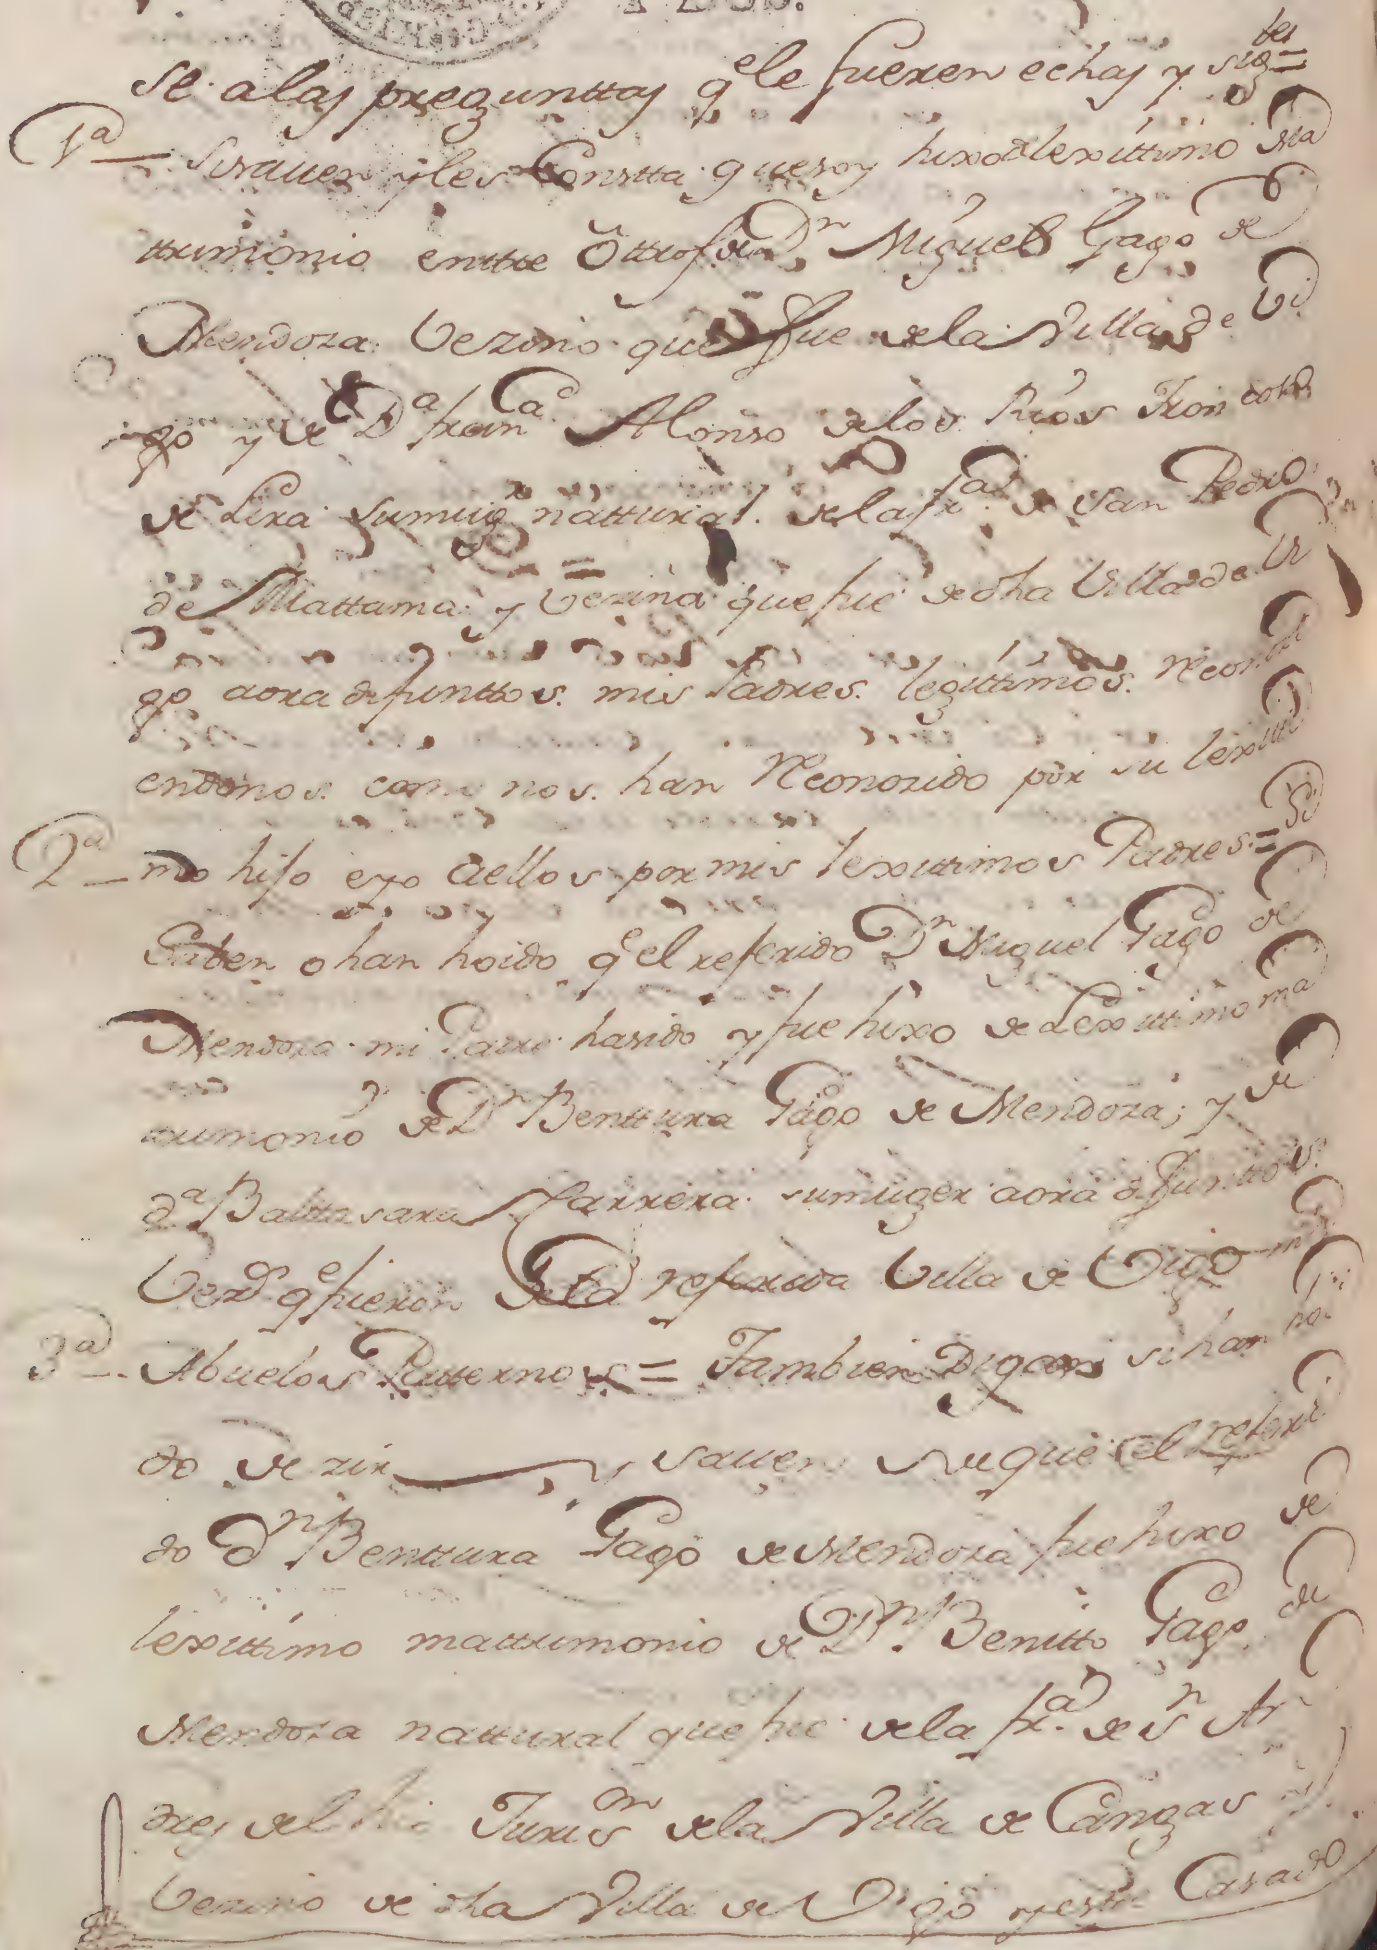 Y DOS.
se. a las preguntas q.e le fueren echas y sig.tes =
1.a — Si sauen y les Constta que soy hixo de lexittimo Ma
ttrimonio enttre ottros de D.n Miguel Gago de
Mendoza. Vezino que fue de la Villa de Vi
go y de D.a fran.ca Alonso de los Rios Troncoso
de Lira su mug.r nattural. de la fr.a de San Pedro
de Mattama y Vezina que fue de dha Villa de Vi
go aora difunttos. mis Padres. legittimos. Reconozi
endonos. como nos. han Reconozido por su lexitti
2.a — mo hijo e yo a ellos por mis lexittimos Padres = Si
Saben o han hoido q.e el referido D.n Miguel Gago de
Mendoza. mi Padre ha sido y fue hixo de Lexittimo ma
trimonio de D.n Benttura Gago de Mendoza; y de
d.a Balttasara Farrera. su muger aora difunttos.
Vez.os q.e fueron de la referida Villa de Vigo mis
3.a — Abuelos Patternos = Tambien Digan si han hoi
do dezir y sauen de que el referi
do D.n Benttura Gago de Mendoza fue hixo de
lexittimo mattrimonio de D.n Benitto Gago de
Mendoza nattural que fue de la fr.a de S.n An
dres del hio Juris.on de la Villa de Cangas y
Vezino de dha Villa de Vigo y este Casado